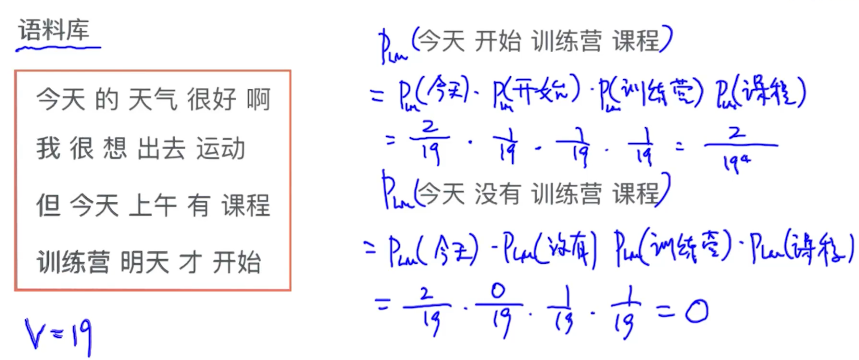 语料库
今天 的 天气 很好 啊
我 很 想 出去 运动
但 今天 上午 有 课程
训练营 明天 才 开始
V=19
P_LM(今天 开始 训练营 课程)
= P_LM(今天)· P_LM(开始)· P_LM(训练营) P_LM(课程)
= 2/19 · 1/19 · 1/19 · 1/19 = 2/19⁴
P_LM(今天 没有 训练营 课程)
= P_LM(今天) · P_LM(没有) P_LM(训练营)· P_LM(课程)
= 2/19 · 0/19 · 1/19 · 1/19 = 0